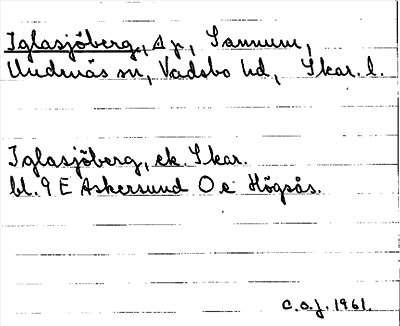 Iglasjöberg, Δ p, Sannum,
Undenäs sn, Vadsbo hd, Skar. l.
Iglasjöberg, ek. Skar.
bl. 9 E Askersund O e Högsås.
C.O.J. 1961.